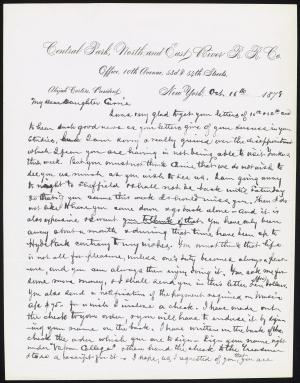 Central Park, North and East River R. R. Co.
Office, 10th Avenue, 53d & 54th Streets,
Abijah Curtiss, President. New York, Oct. 16th 1878
My dear Daughter Carrie
I was very glad to get your letters of 10th & 12th and
to hear such good news as your letters give of your success in your
studies, I am very sorry a really grieved over the disappointment
which I give you in having in not being able to visit
this week. But you must not think Carrie that we do not wish to
see you as much as you wish to see us. I am going away
to night to Sheffield & shall not be back until Saturday
so that if you came this week I should miss you. Then I do
not like to have you come down & go back alone and it is
also expensive & I want you to have you have only been
away about a month & during that time have been up to
Hyde Park contrary to my wishes. You must think that life
is not all for pleasure, unless one's duty becomes always a pleas-
ure, and you are always then enjoying doing it. You ask me for
some more money, & I shall send you in this letter five dollars.
You also send a notification of the payment required on
of $75. for which I inclose a check. I have made out
the check to your order, & you will have to endorse it by sign-
ing your name on the back. I have written on the back of the
check the order which you are to sign. Sign your name right
under "Vassar College" & then hand the check to the treasurer
& take a receipt for it. I hope, as I suggested at that you are